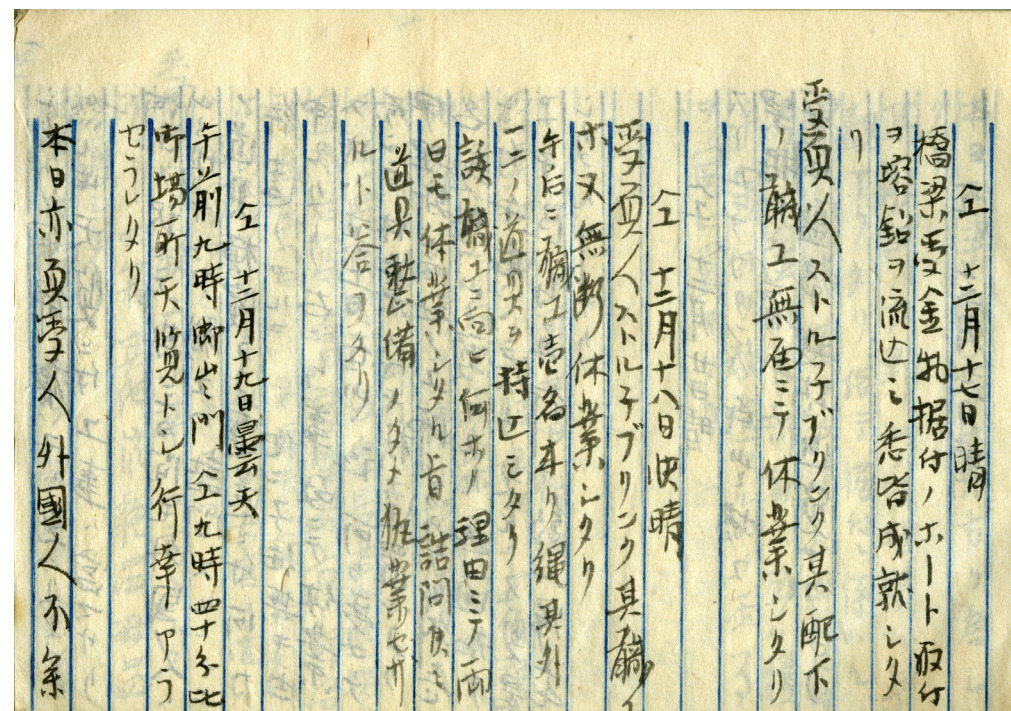 仝 十二月十七日 晴
橋梁受金物据付ノボート取付
ヲ熔鉛ヲ流込ミ悉皆成就シタ
リ
受負人ストルネブリンク其配下
ノ職工無届ニテ休業シタリ
仝 十二月十八日 快晴
受負人ストルネブリンク其職
亦又無断休業シタリ
午后ニ職工壱名来リ縄其外
一二ノ道具ヲ持
該職工ニ向ヒ何ホノ理由ニテ両
日モ休業シタル旨詰問
道具整備ノタメ
ルト答ヲタリ
仝 十二月十九日曇天
午前九時御 門 仝九時四十分比
御場所天覧トシ行幸アラ
セラレタリ
本日亦負受人外國人不参